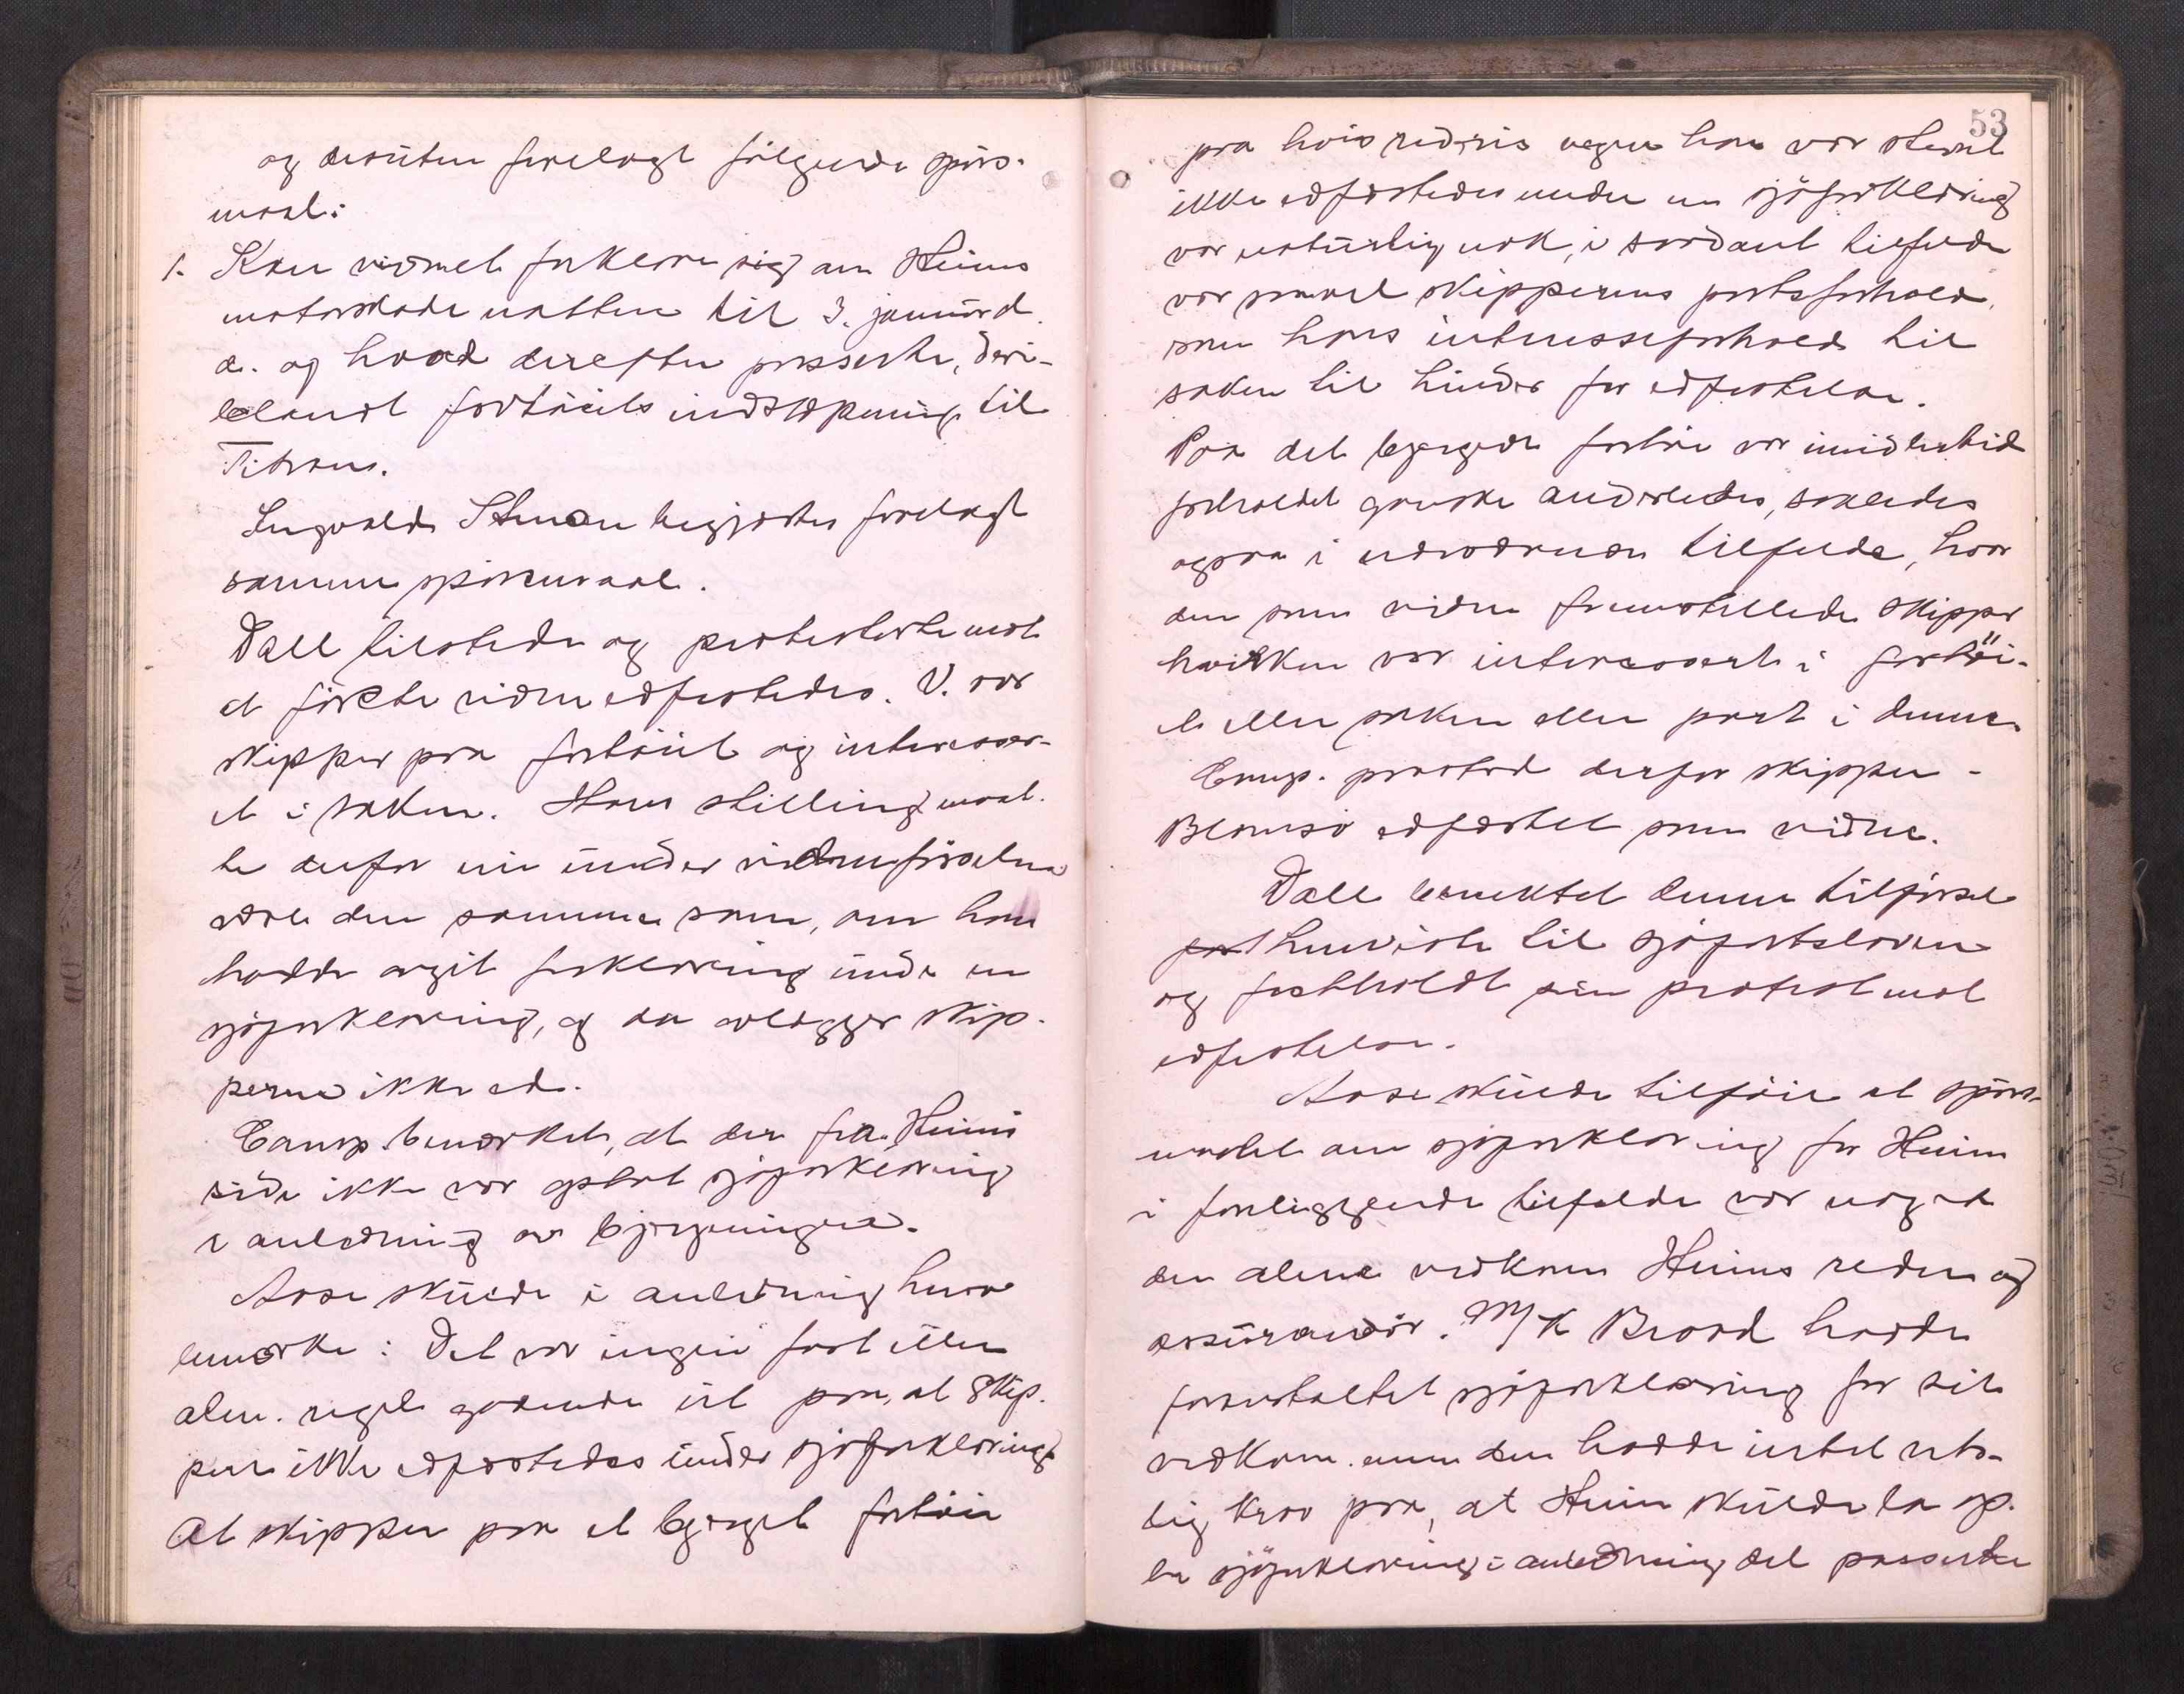 og desuten forelagt følgende spørs-
maal:
1. Kan vidnet forklare sig om Heims
motorskade natten til 3. januar d.
a. og hvad derefter passerte, deri-
blandt fartøiets indslæpning til
Titran.
Ingvald Stensø begjærtes forelagt
samme spørsmaal.
Dall tilstede og protesterte mot
at første vidne edfæstedes. V. var
skipper paa fartøiet og interesser-
et i saken. Hans stilling maat-
te derfor nu under vidneførselen
være den samme som, om han
hadde avgit forklaring under en
sjøforklaring, og da avlægger skip-
perne ikke ed.
Camp. bemærket, at der fra Heims
side ikke var optat sjøforklaring
i anledning av bjergningen.
Aase skulde i anledning herav
bemærke: Det var ingen fast eller
alm. regel gaaende ut paa, at skip-
pere ikke edfæstedes under sjøforklaring.
At skipper paa et bjerget fartøi
53
paa hvis rederis vegne han var stevnet
ikke edfæstedes under en sjøforklaring
var naturlig nok, i saadant tilfælde
var saavel skipperens partsforhold
som hans interesseforhold til
saken til hinder for edfæstelse.
Paa det bjergede fartøi var imidlertid
forholdet ganske anderledes, saaledes
ogsaa i nærværende tilfælde, hvor
den som vidne fremstillede skipper
hverken var interessert i fartøi-
et eller saken eller part i denne.
Camp. paastod derfor skipper
Blomsø edfæstet som vidne.
Dall benektet denne tilførsel
henviste til sjøfartsloven
og fastholdt sin protest mot
edfæstelse.
Aase skulde tilføie at spørs-
maalet om sjøforklaring for Heim
i foreliggende tilfælde var noget
der alene vedkom Heims rederi og
assurandør. M/K Brand hadde
foranstaltet sjøforklaring for sit
vedkom. men den hadde intet rets-
lig krav paa, at Heim skulde la op-
ta sjøforklaring i anledning det passerte